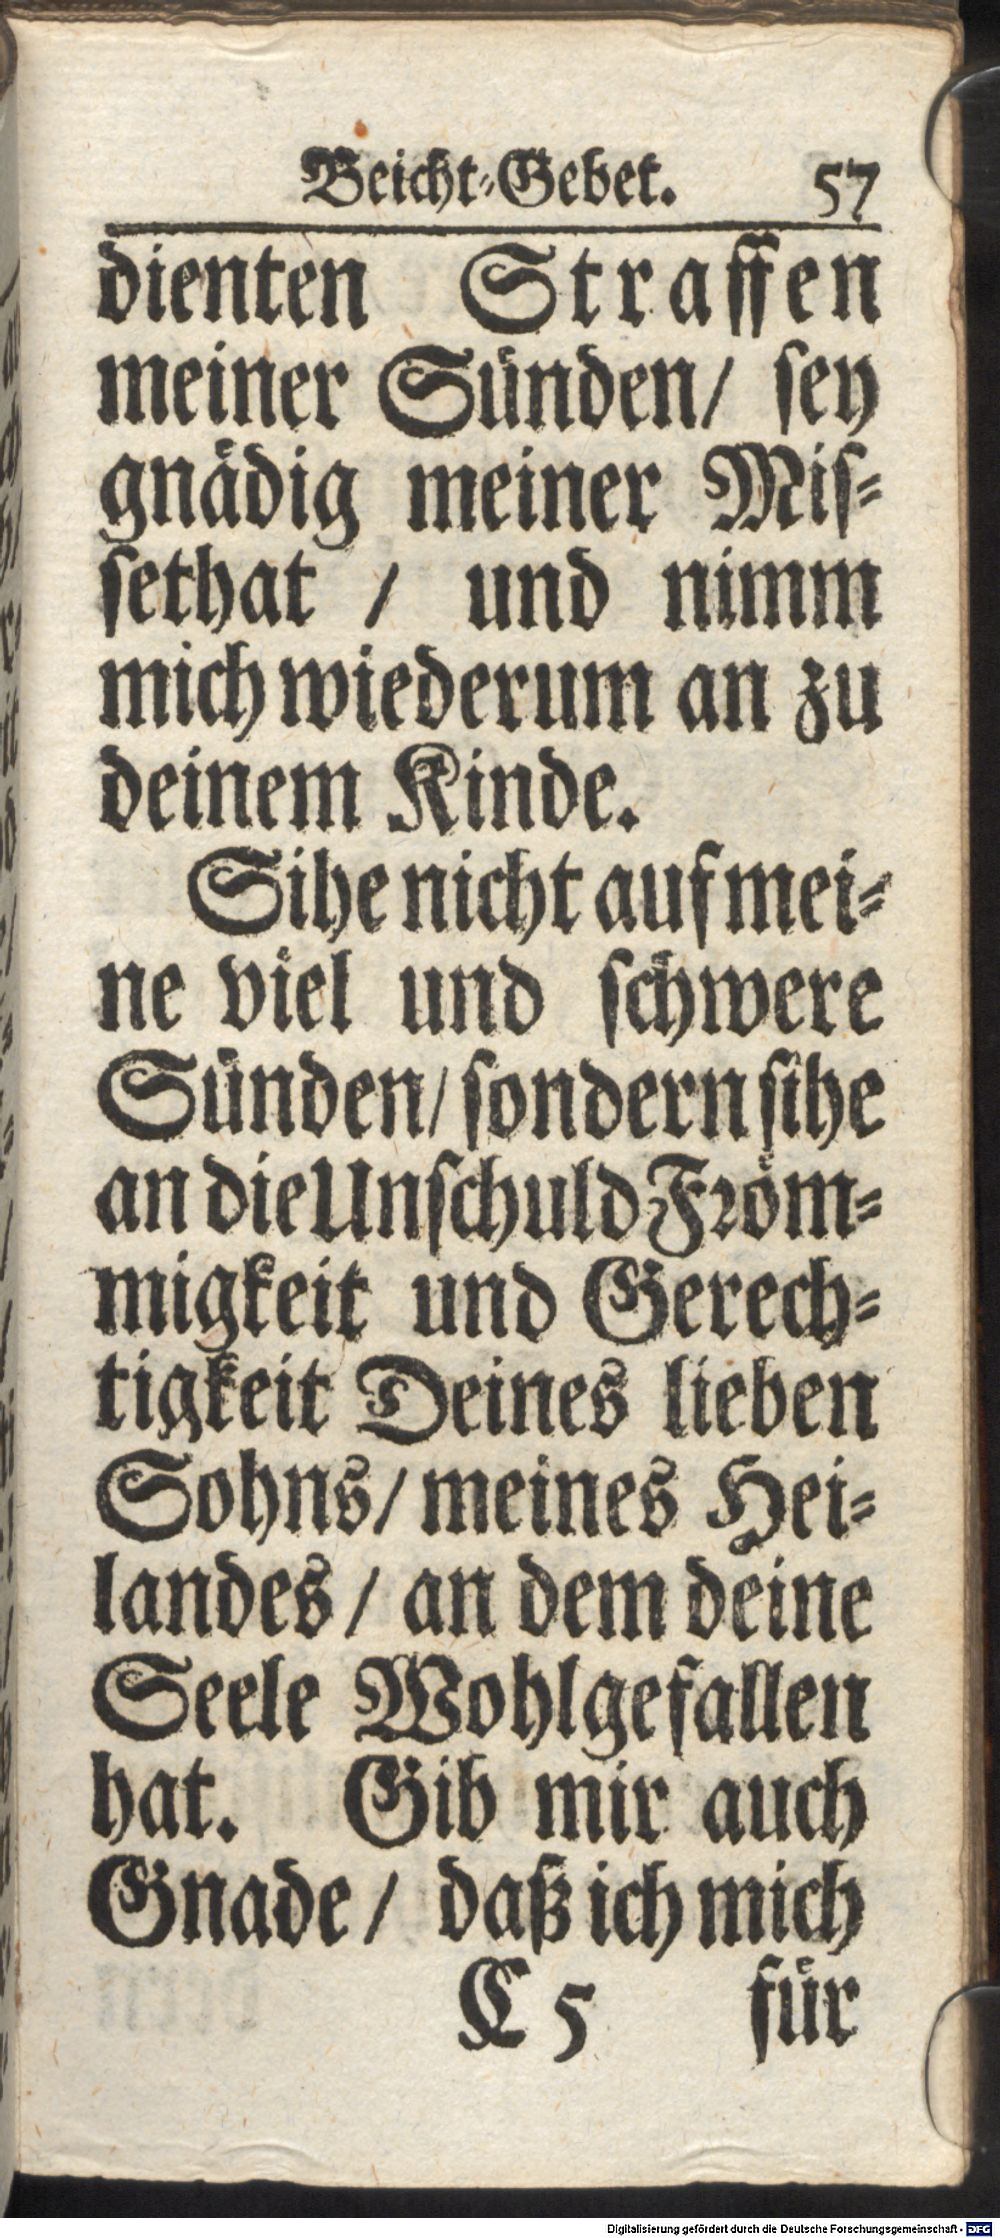 Beicht-Gebet. 57
dienten Straffen
meiner Sünden/ sey
gnädig meiner Mis-
sethat / und nimm
mich wiederum an zu
deinem Kinde.
Sihe nicht auf mei-
ne viel und schwere
Sünden/ sondern sihe
an die Unschuld From-
migkeit und Gerech-
tigkeit Deines lieben
Sohns/ meines Hei-
landes / an dem deine
Seele Wohlgefallen
hat. Gib mir auch
Gnade / daß ich mich
C 5 für
Digitalisierung gefördert durch die Deutsche Forschungsgemeinschaft - DFG